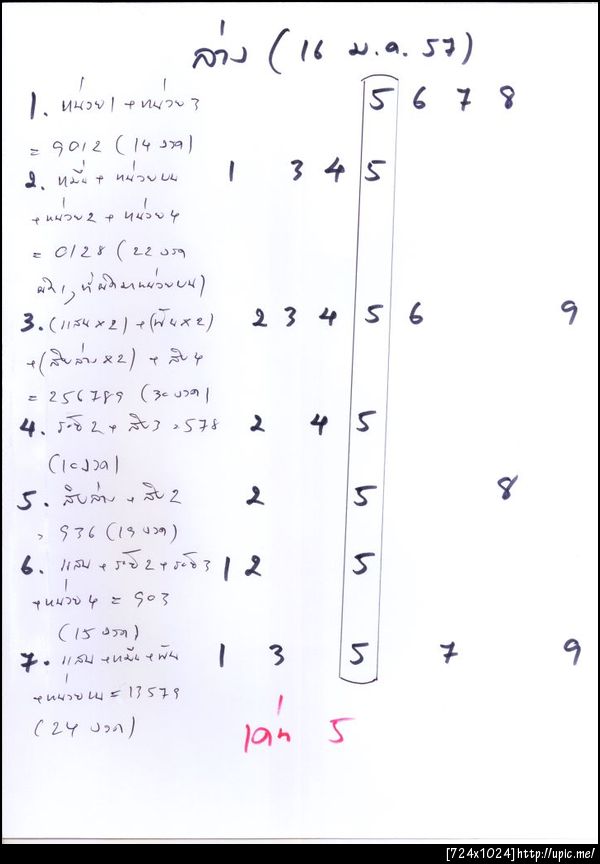 ล่าง (16 ม.ค. 57)
1. หน่วย1 + หน่วย3 5 6 7 8
= 9012 (14 งวด)
2. หมื่น + หน่วยบน 1 3 4 5
+หน่วย2 + หน่วย4
= 0128 (22 งวด
ผิด1, ที่ผิดมาหน่วยบน)
3. (แสน×2) + (พัน×2) 2 3 4 5 6 9
+(สิบล่าง×2) + สิบ4
= 256789 (30 งวด)
4. ร้อย2 + สิบ3 = 578 2 4 5
(10 งวด)
5. สิบล่าง + สิบ2 2 5 8
= 936 (19 งวด)
6. แสน + ร้อย2 + ร้อย3 1 2 5
+หน่วย4 = 903
(15 งวด)
7. แสน + หมื่น + พัน 1 3 5 7 9
+หน่วยบน = 13579
(24 งวด)
เด่น 5
[724x1024]http://upic.me/